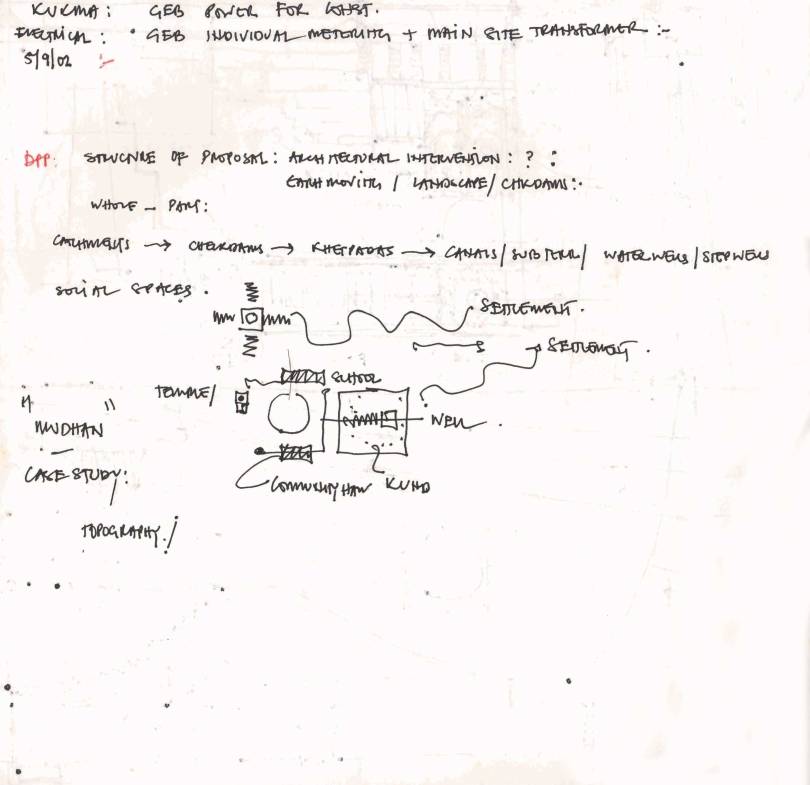 KUKMA: GEB POWER FOR
ELECTRICAL: • GEB INDIVIDUAL METERING + MAIN SITE TRANSFORMER :-
5/9/02 :-
DPP: STRUCTURE OF PROPOSAL: ARCHITECTURAL INTERVENSION: ? :
EARTHMOVING / LANDSCAPE/ CHKDAMS:.
WHOLE - PART:
CATCHMENTS → CHECKDAMS → → CANALS/SUBTERR/ WATERWELLS/STEPWELLS
SOCIAL SPACES.
SETTLEMENT.
SETTLEMENT.
SCHOOL
TEMPLE/
WELL.
" "
CASE STUDY:
COMMUNITY HALL KUND
TOPOGRAPHY./